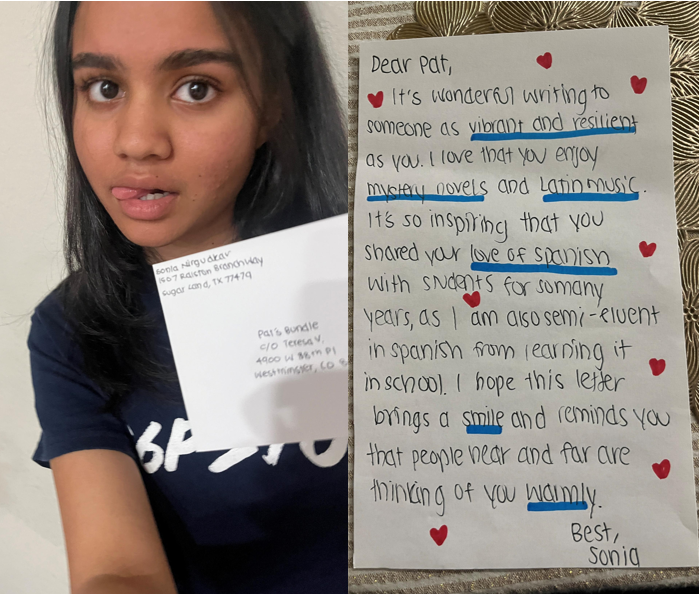 Sonia Nirguakar
1567 Ralston Branch Way
Sugar Land, TX 77479
Pat's Bundle
C/O Teresa V.
4900 W 88th Pl
Westminster, CO
Dear Pat,
It's wonderful writing to
someone as vibrant and resilient
as you. I love that you enjoy
mystery novels and Latin music.
It's so inspiring that you
shared your love of spanish
with students for so many
years, as I am also semi-fluent
in spanish from learning it
in school. I hope this letter
brings a smile and reminds you
that people near and far are
thinking of you warmly.
Best,
Sonia